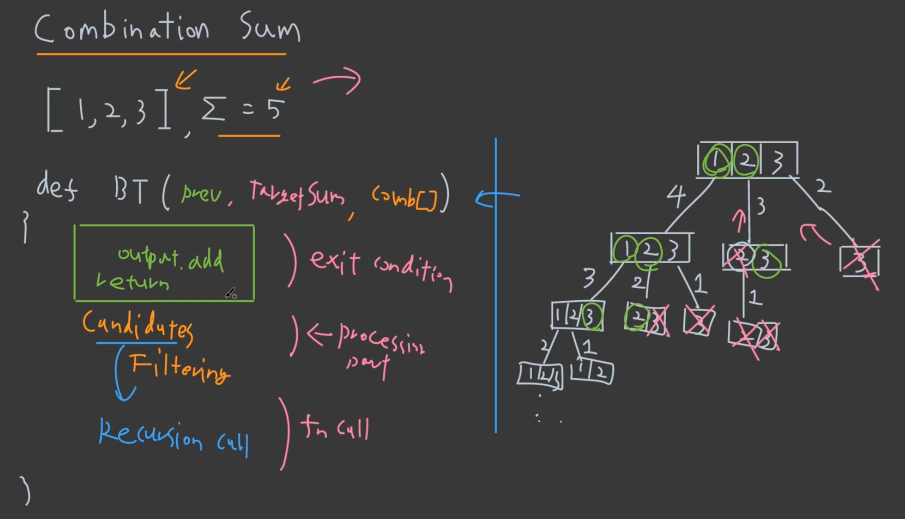 Combination Sum
[ 1, 2, 3 ], Σ = 5
def BT ( prev, TargetSum, Comb[] )
{
output.add
return
exit condition
Candidates
← processing part
Filtering
Recursion call
fn call
}
1 2 3
4 3 2
1 2 3
2 3
3
3 2 1
1
1 2 3
2 3
3
2 3
2 1
1 2 3
1 2